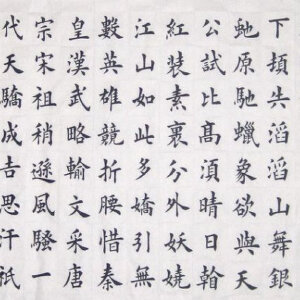 下頓失滔滔山舞銀
虵原馳蠟象欲與天
公試比髙湏晴日
紅裝素裹分外妖嬈
江山如此多嬌引無
數英雄競折腰惜秦
皇漢武略輸文采唐
宗宋祖稍遜風騷一
代天驕成吉思汗祇